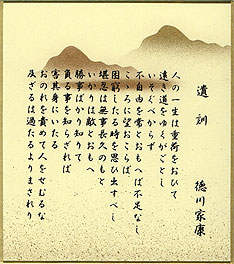 遺訓
徳川家康
人の一生は重荷をおひて
遠き道をゆくがごとし
いそぐべからず
不自由を常とおもへば不足なし
こゝろに望おこらば
困窮したる時を思ひ出すべし
堪忍は無事長久のもと
いかりは敵とおもへ
勝事ばかり知りて
負る事を知らざれば
害其身にいたる
おのれを責めて人をせむるな
及ざるは過たるよりまされり